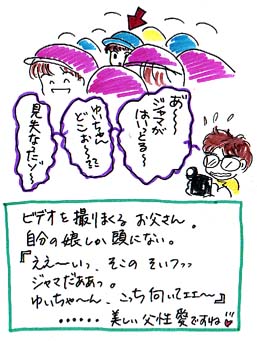 あ〜〜
ジャマが
はいっとる〜
ゆいちゃん
どこお〜〜
見失なったゾ〜
ビデオを撮りまくるお父さん。
自分の娘しか頭にない。
『ええ〜いっ、そこのそいフっっ
ジャマだああっ。
ゆいちゃ〜ん、こっち向いてェエ〜』
……美しい父性愛ですね